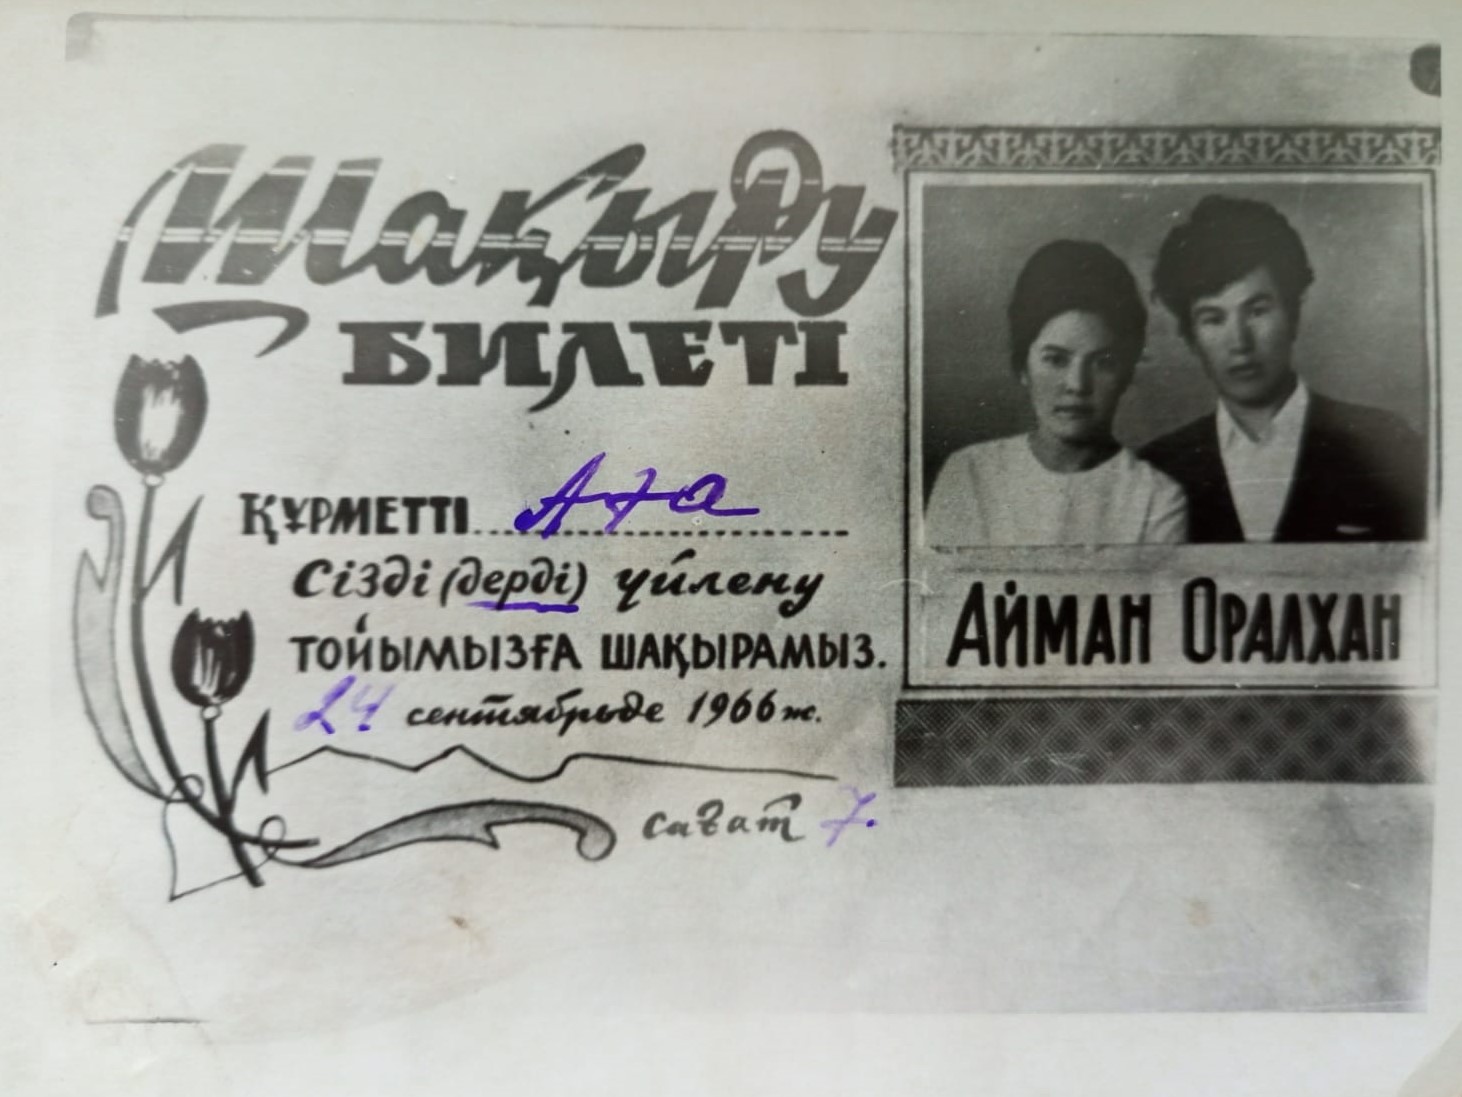 Шақыру
БИЛЕТІ
ҚҰРМЕТТІ Аға
Сізді (дерді) үйлену
ТОЙЫМЫЗҒА ШАҚЫРАМЫЗ.
24 сентябрьде 1966 ж.
сағат 7.
АЙМАН ОРАЛХАН